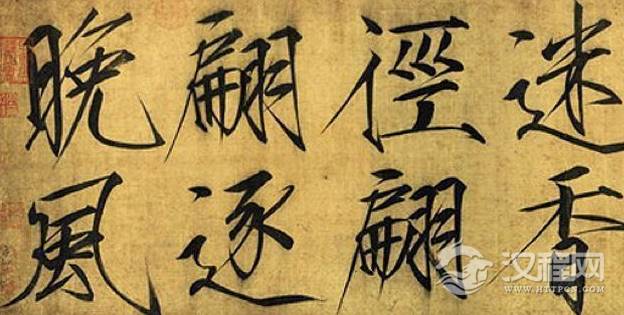 迷香
徑翩
翩逐
晚風
汉程网
WWW.HTTPCN.COM